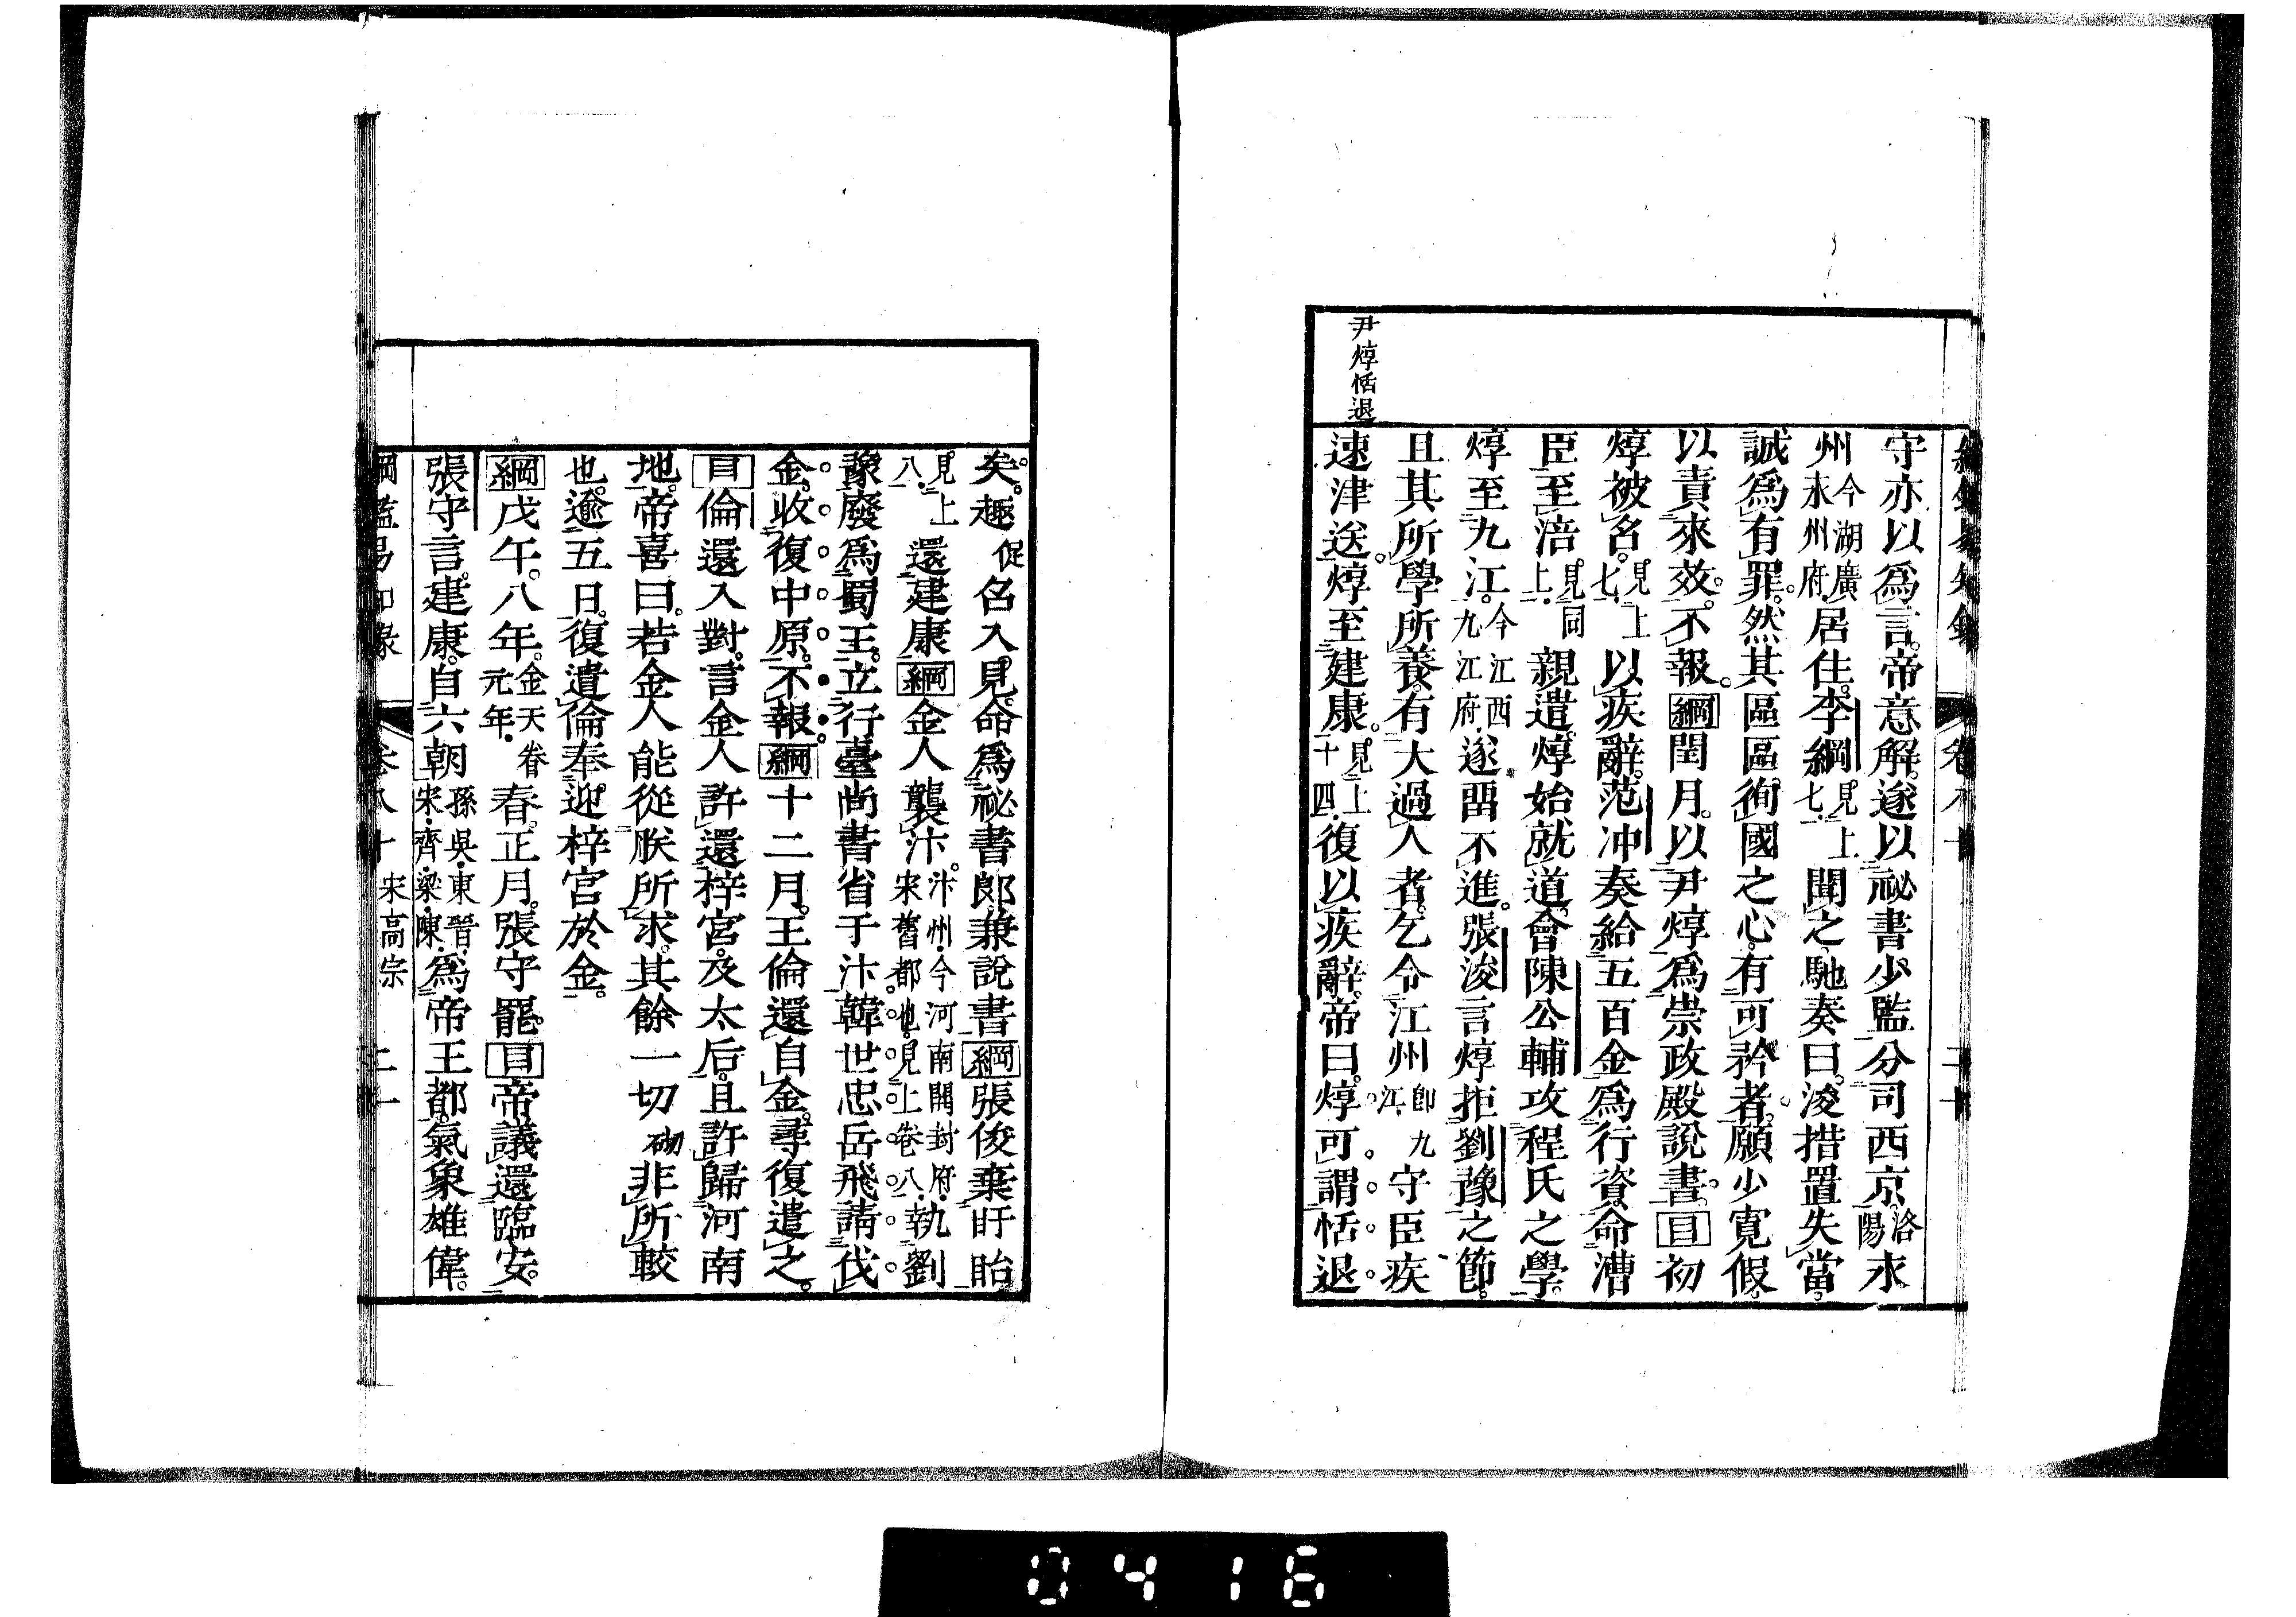 綱鑑易知錄 卷八十 二十
尹焞恬退
守亦以爲言。帝意解。遂以祕書少監分司西京。洛陽永
州今湖廣永州府。居住。李綱見上七。聞之。馳奏曰。浚措置失當。
誠爲有罪。然其區區徇國之心。有可矜者。願少寬假。
以責來效。不報。綱閏月。以尹焞爲崇政殿說書。目初
焞被召。見上七。以疾辭。范冲奏給五百金爲行資。命漕
臣至涪見同上。親遣。焞始就道。會陳公輔攻程氏之學。
焞至九江。今江西九江府。遂畱不進。張浚言焞拒劉豫之節。
且其所學所養。有大過人者。乞令江州卽九江。守臣疾
速津送。焞至建康。見上十四。復以疾辭。帝曰。焞可謂恬退
矣。趣促召入見。命爲祕書郎。兼說書。綱張俊棄盱眙
見上八。還建康。綱金人襲汴。汴州。今河南開封府。宋舊都也。見上卷八。執劉
豫。廢爲蜀王。立行臺尚書省于汴。韓世忠岳飛請伐
金。收復中原。不報。綱十二月。王倫還自金。尋復遣之。
目倫還入對。言金人許還梓宮。及太后。且許歸河南
地。帝喜曰。若金人能從朕所求。其餘一切砌非所較
也。逾五日。復遣倫奉迎梓宮於金。
綱戊午。八年。金天眷元年。春。正月。張守罷。目帝議還臨安。
張守言建康。自六朝孫吳。東晉。宋。齊。梁。陳。爲帝王都。氣象雄偉。
綱鑑易知錄 卷八十 宋高宗 二十一
0416